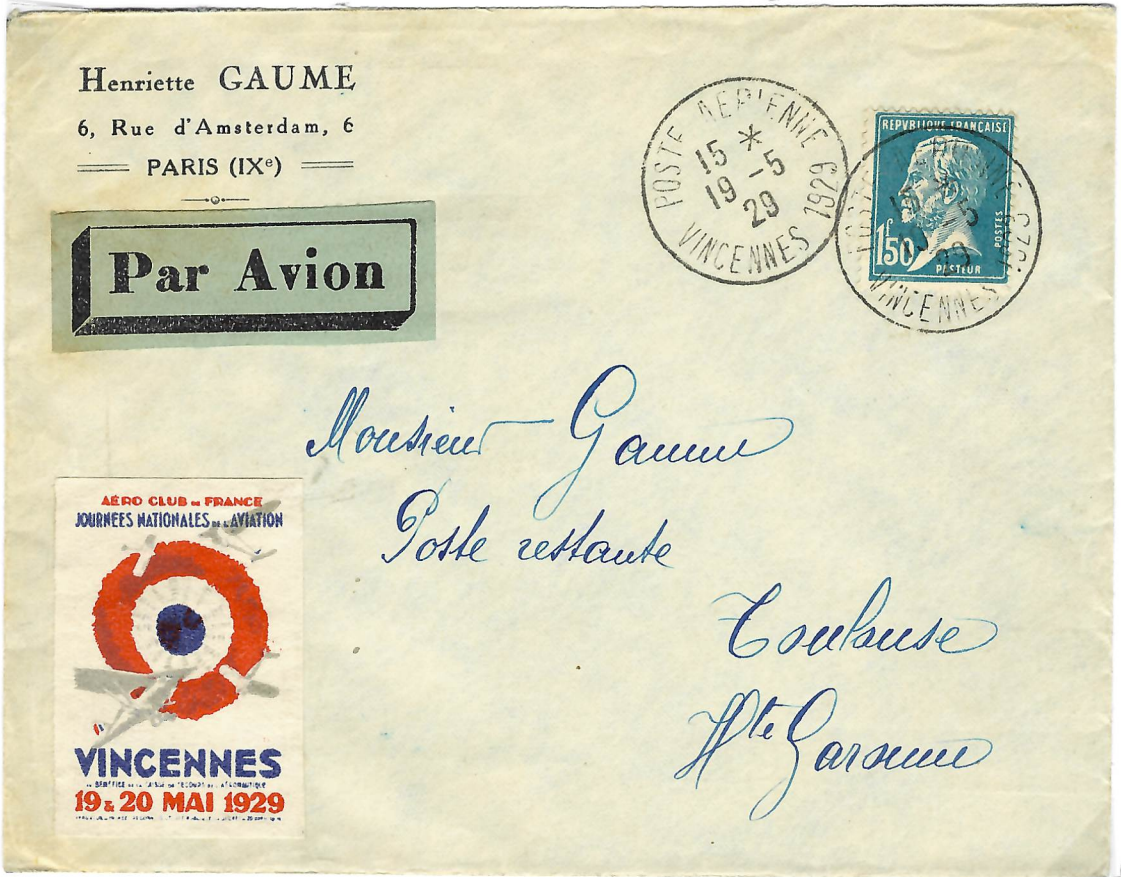 Henriette GAUME
6, Rue d'Amsterdam, 6
PARIS (IXe)
Par Avion
POSTE AERIENNE 1929
15 *
19 - 5
29
VINCENNES
REPVBLIQUE FRANÇAISE
1f50
POSTES
PASTEUR
VINCENNES
Monsieur Gaume
Poste restante
Toulouse
Hte Garonne
AÉRO CLUB DE FRANCE
JOURNÉES NATIONALES DE L'AVIATION
VINCENNES
19 & 20 MAI 1929